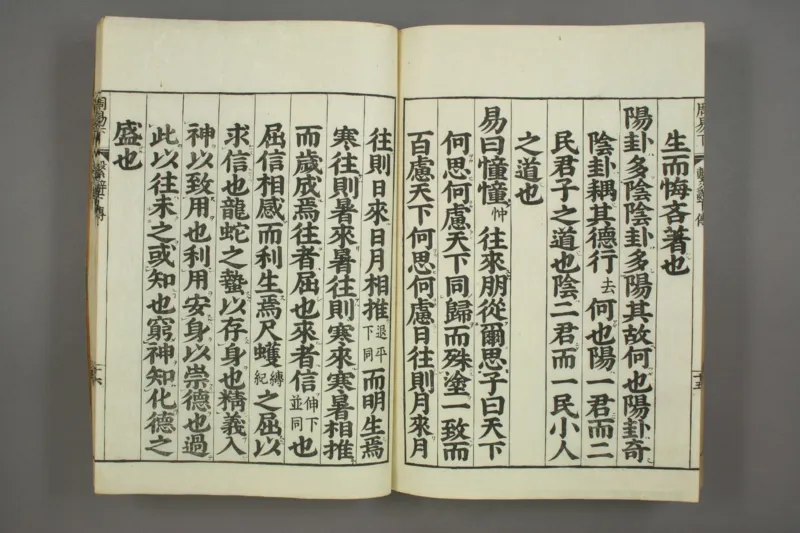 生而悔吝著也
陽卦多陰陰卦多陽其故何也陽卦奇
陰卦耦其德行去何也陽一君而二
民君子之道也陰二君而一民小人
之道也
易曰憧憧忡往來朋從爾思子曰天下
何思何慮天下同歸而殊塗一致而
百慮天下何思何慮日往則月來月
往則日來日月相推退平下同而明生焉
寒往則暑來暑往則寒來寒暑相推
而歲成焉往者屈也來者信伸下並同也
屈信相感而利生焉尺蠖縛紀之屈以
求信也龍蛇之蟄以存身也精義入
神以致用也利用安身以崇德也過
此以往未之或知也窮神知化德之
盛也
周易下